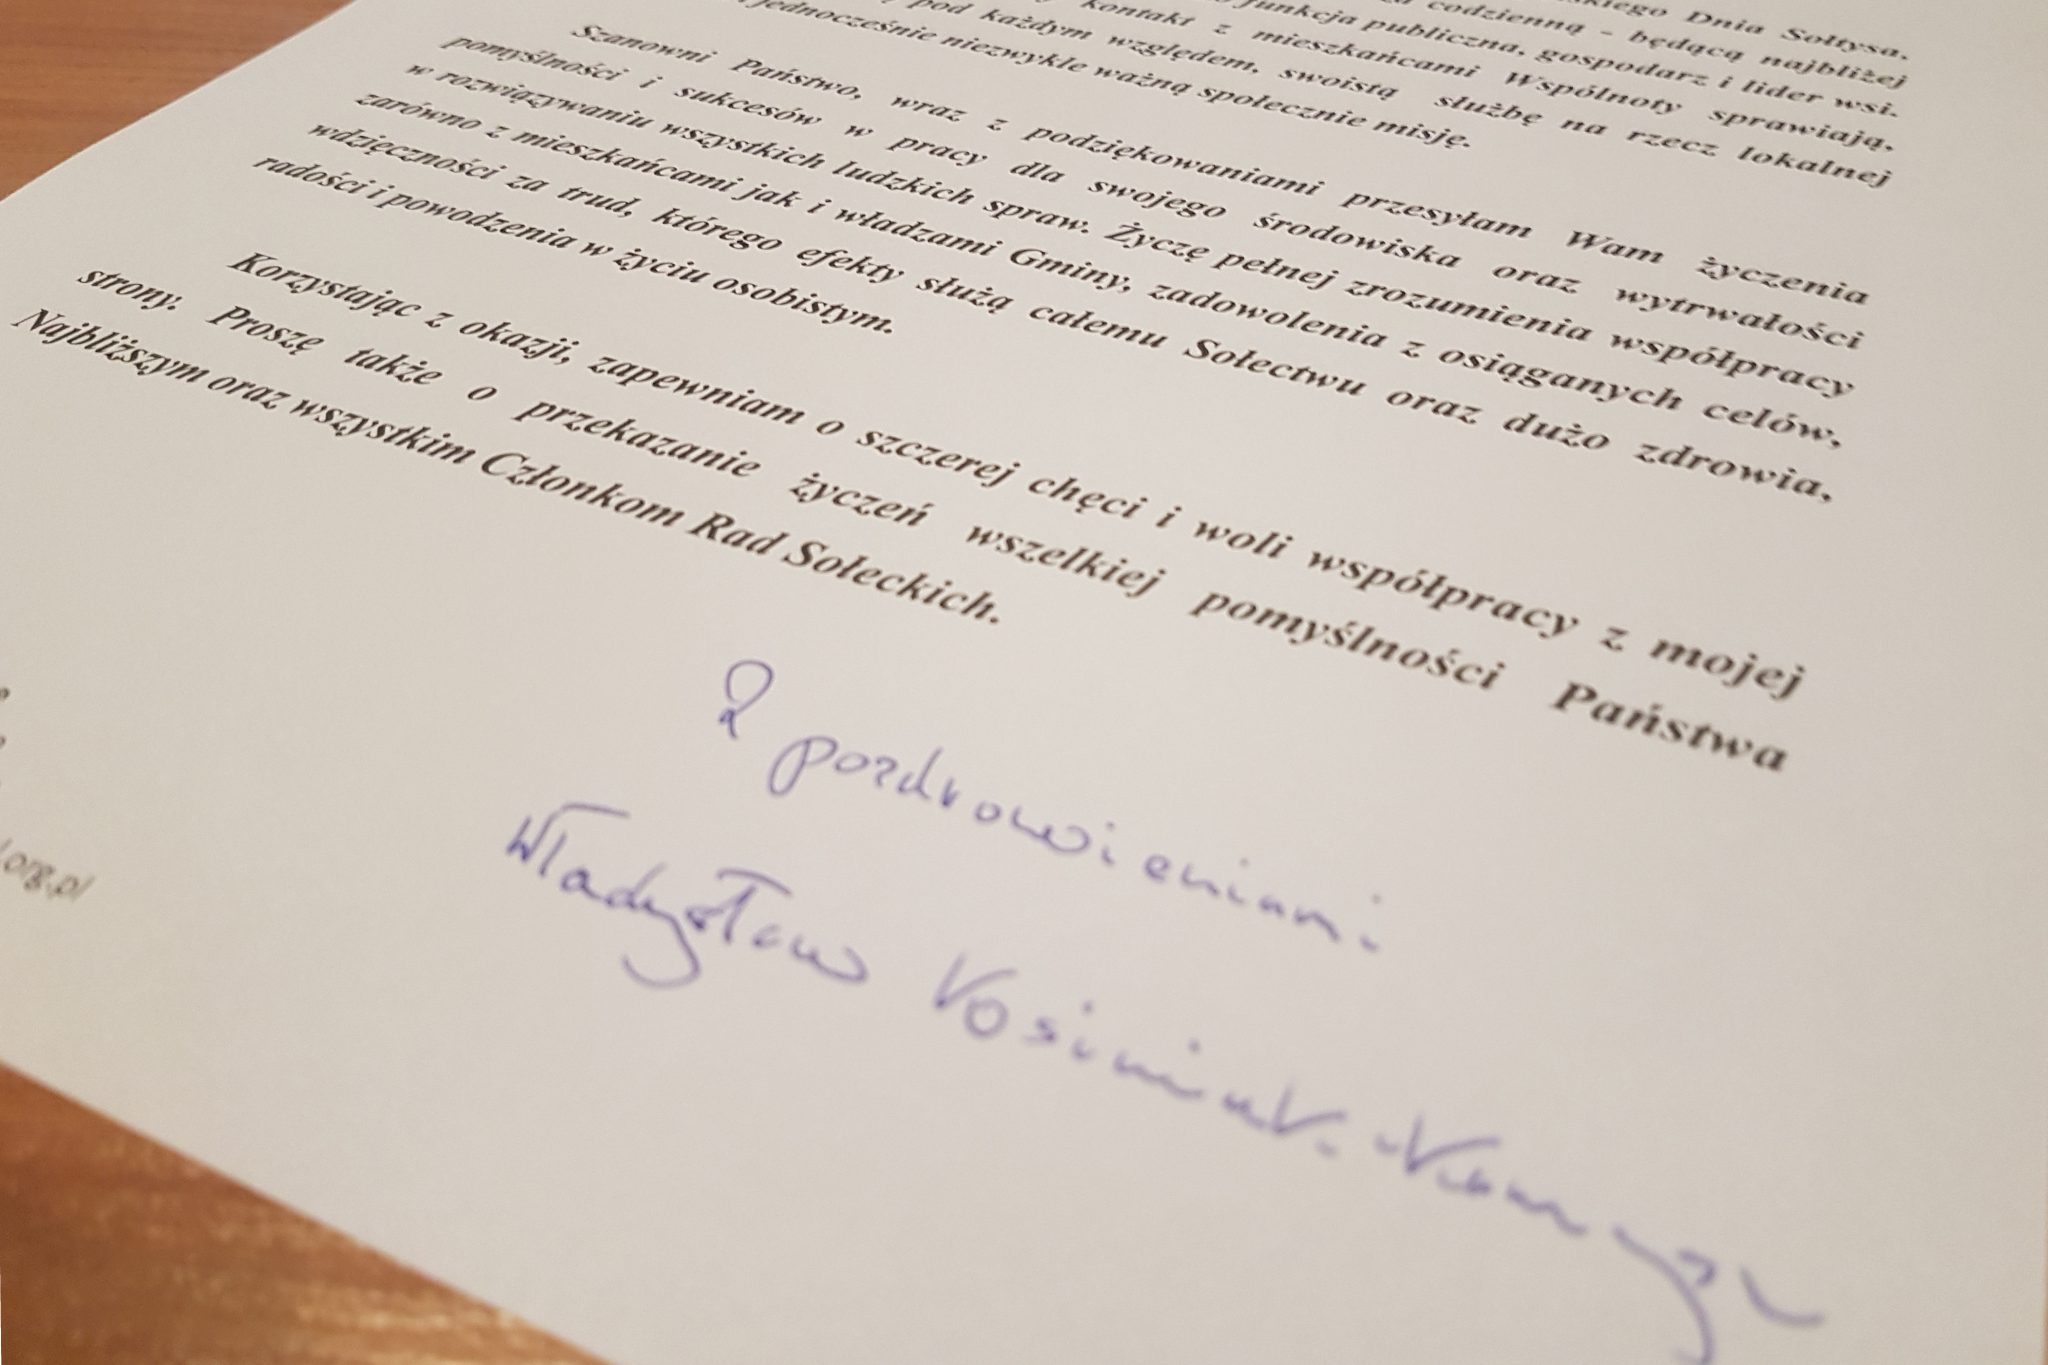 skiego Dnia Sołtysa.
codzienną - będącą najbliżej
funkcja publiczna, gospodarz i lider wsi.
kontakt z mieszkańcami Wspólnoty sprawiają,
pod każdym względem, swoistą służbę na rzecz lokalnej
jednocześnie niezwykle ważną społecznie misję.
Szanowni Państwo, wraz z podziękowaniami przesyłam Wam życzenia
pomyślności i sukcesów w pracy dla swojego środowiska oraz wytrwałości
w rozwiązywaniu wszystkich ludzkich spraw. Życzę pełnej zrozumienia współpracy
zarówno z mieszkańcami jak i władzami Gminy, zadowolenia z osiąganych celów,
wdzięczności za trud, którego efekty służą całemu Sołectwu oraz dużo zdrowia,
radości i powodzenia w życiu osobistym.
Korzystając z okazji, zapewniam o szczerej chęci i woli współpracy z mojej
strony. Proszę także o przekazanie życzeń wszelkiej pomyślności Państwa
Najbliższym oraz wszystkim Członkom Rad Sołeckich.
Z pozdrowieniami
Władysław Kosiniak-Kamysz
.org.pl